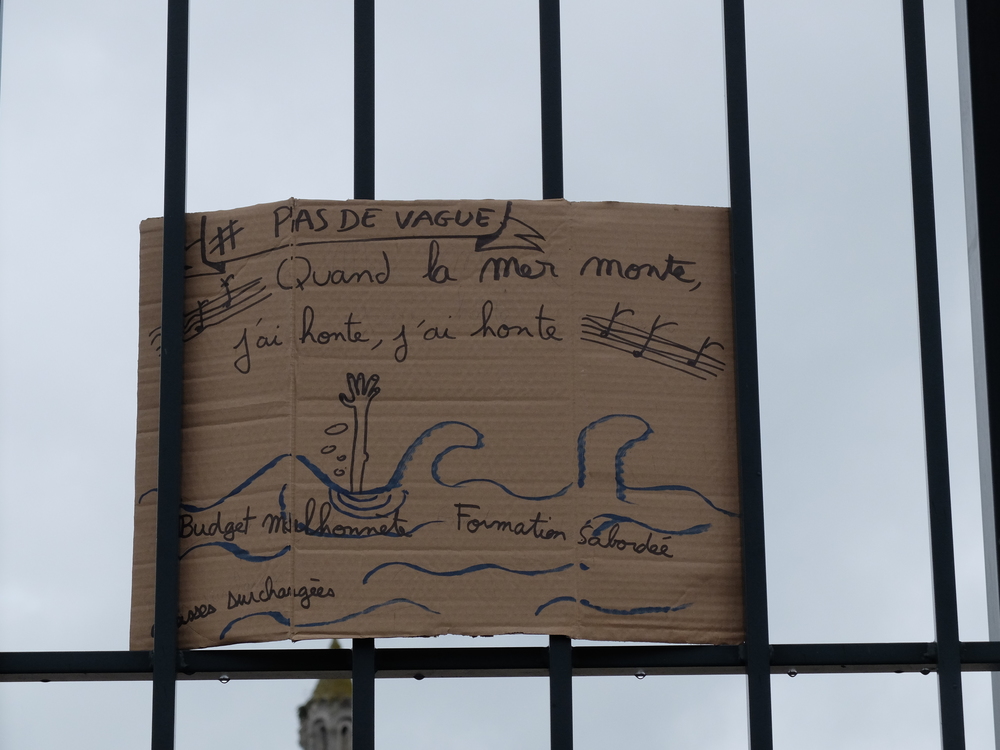 # PAS DE VAGUE
Quand la mer monte,
j'ai honte, j'ai honte
Budget malhonnête
Formation Sabordée
surchargées